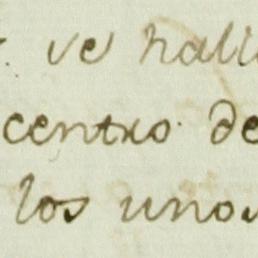 ve hall
centro de
los unos